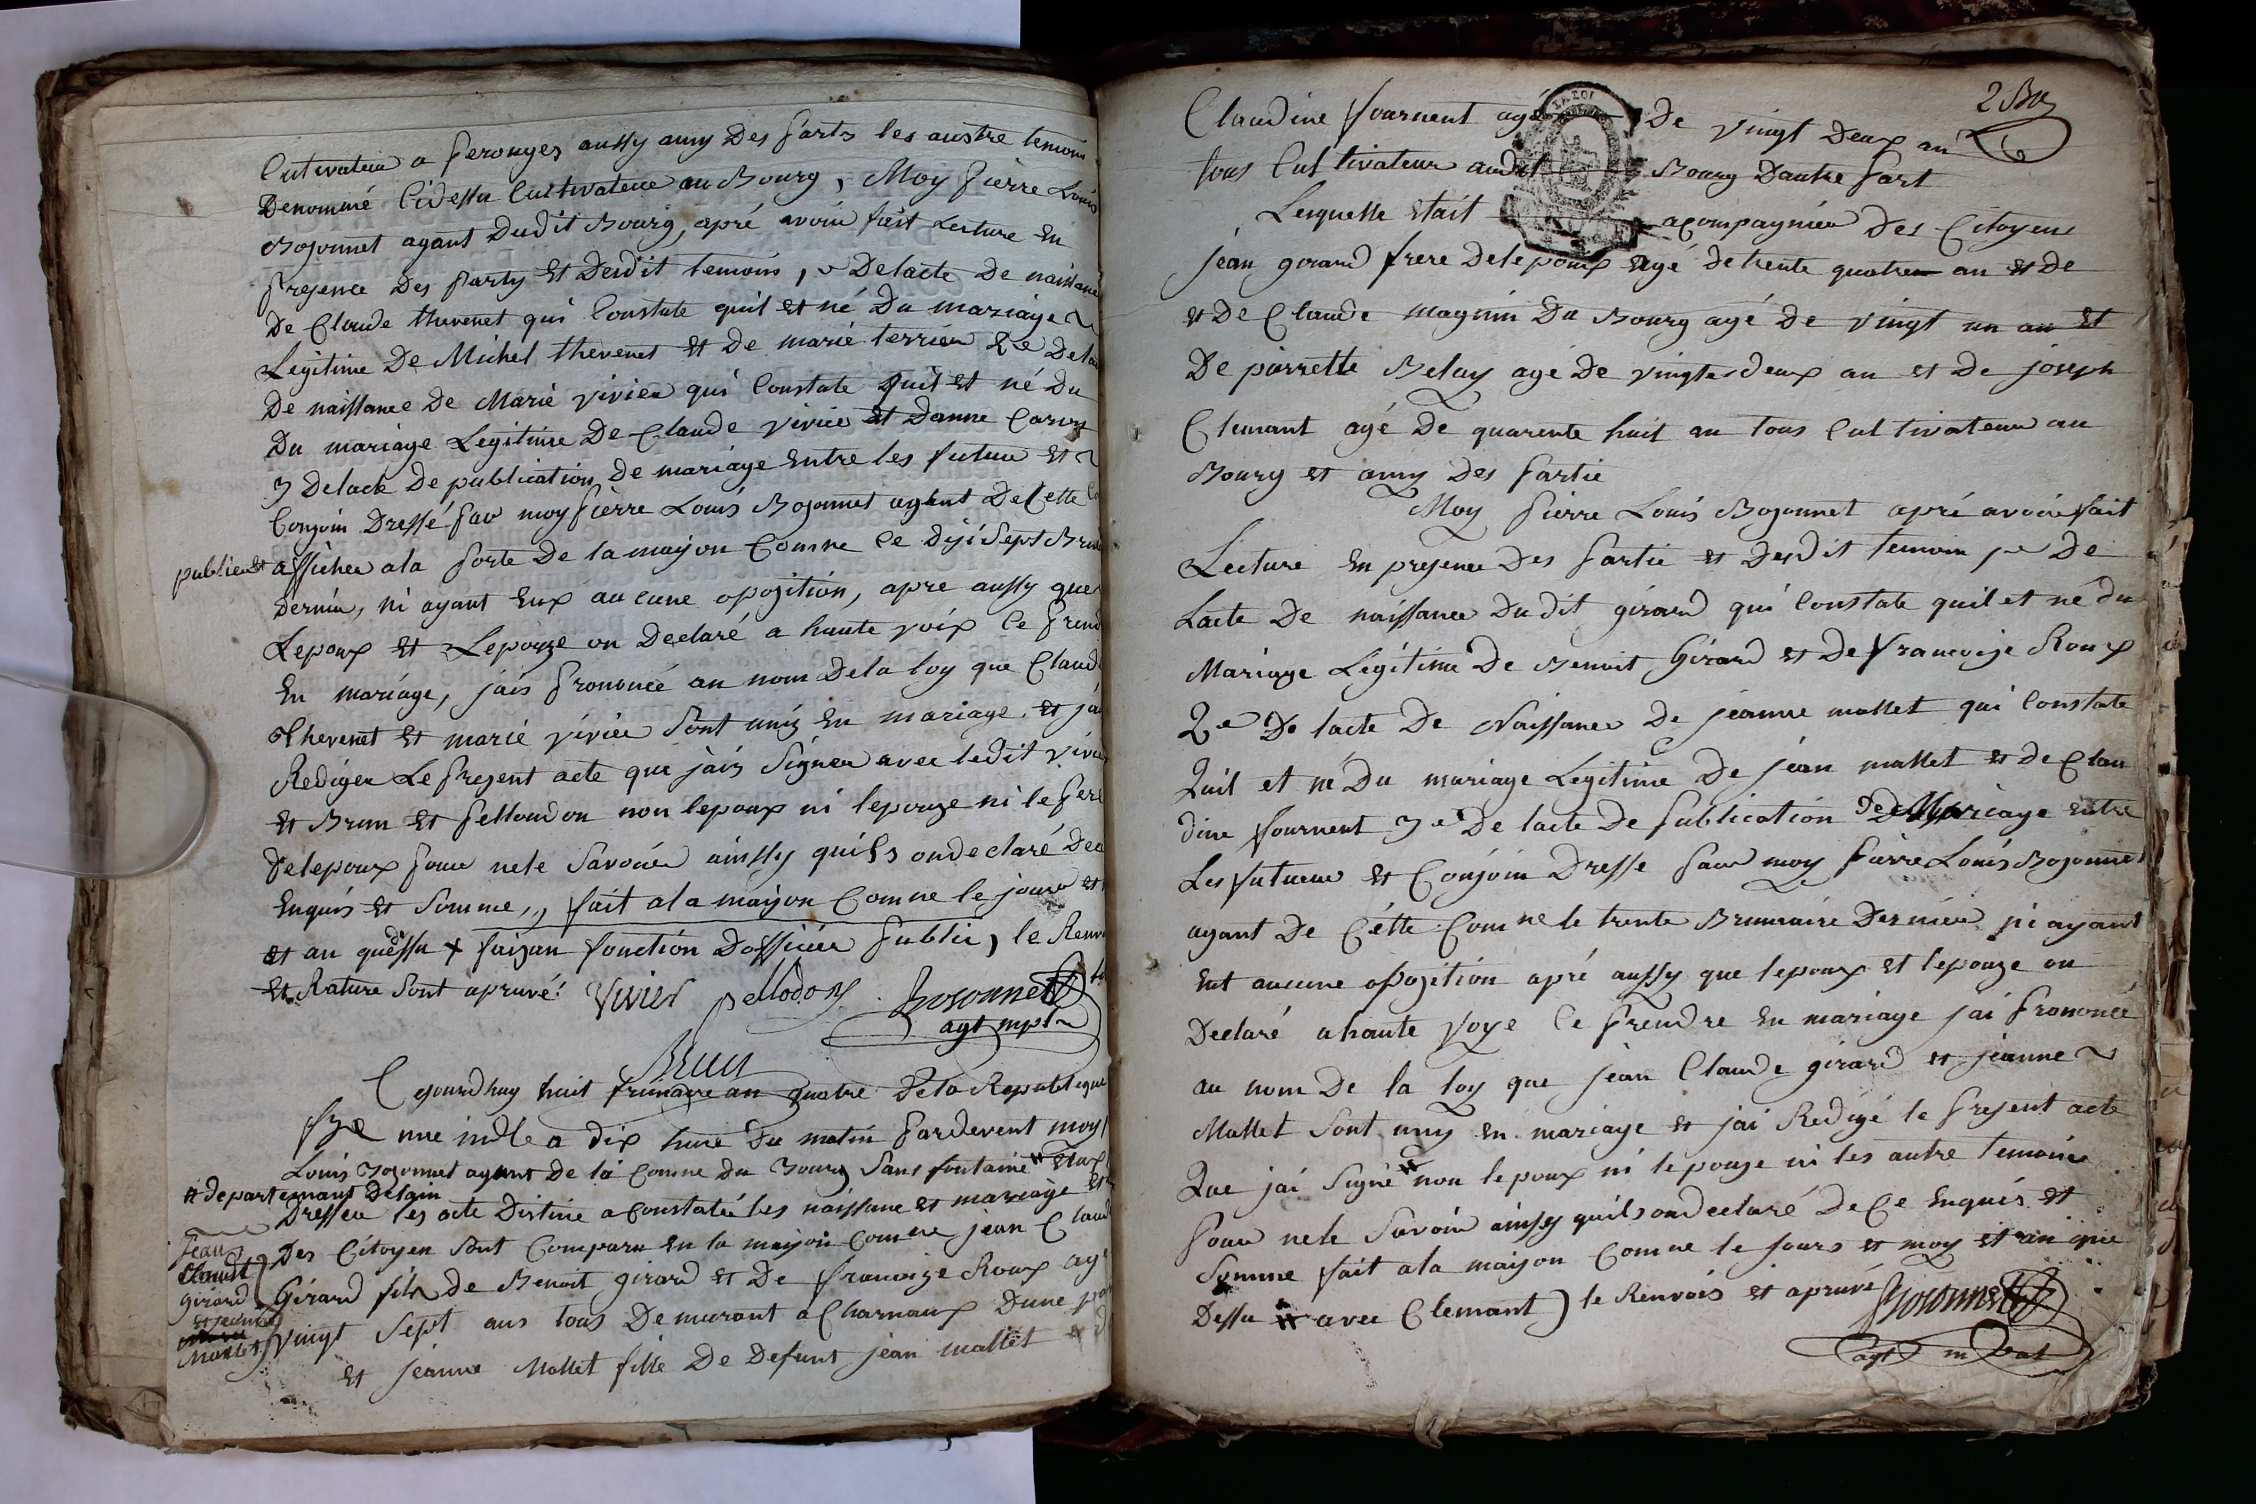 Cutivateur a perouges aussy amy des parts les austre temoin
Denommé Cidessu Cultivateur au Bourg, Moy pierre Louis
Bozonnet agant Dudit Bourg, apré avoir fait Lecture en
presence Des party et Desdit temoins, De lacte De naissance
De Claude thevenet qui Constate quil et né Du mariage
Legitime De Michel thevenet et de marie terrier 2e De lac
De naissance de Marie vivier qui Constate quil et né Du
Du mariage Legitime De Claude vivier et Danne Carry
3 Delacte De publication De mariage Entre les futeur et
Conjoin Dressé par moy pierre Louis Bozonnet agent De Cette
publier et afficher ala porte De la maison Comne le diji Sept Brum
Dernier, ni ayant Eux au cune opozition, apre aussy que
Lepoux et Lepouze on Declaré a haute voix Ce prend
En mariage, jais prononcé au nom Dela loy que Claude
thevenet et marié vivier Sont unis En mariage. et jai
Rediger Le present acte que jais Signer avec ledit vivier
et Brun et pellondon non lepoux ni lepouze ni le pere
Delepoux pour nele Savoier ainssy quils ondeclaré Dece
Enquis et Somme,, fait ala maison Comne le joure et
et an quedssu + faizan fonction Dofficier public, le Renvoi
et Rature Sont apruvé. Vivier pellodon Bozonnet
agt mpl
Brun
Cejourdhuy huit frimaire an quatre De la Republique
fze une indle a dix hure Du matin pardevent moy
Louis Bozonnet agent De la Comne du Bourg Sans fontaine # Elu p
# departemant Delain
Dresser les acte Distiné a Constaté les naissance et mariage et
Des Citoyen Sont Comparu En la maison Comne jean Claude
jean Claude girard et jeanne Mallet
Girard fils de Benoit girard et De francoize Roux agé
vingt Sept ans tous Demeurant a Charnaux Dune part
et jeanne Mallet fille De Defunt jean mallet et de
2 Bre
Claudine fournent agé De vingt Deux an
tous Cultivateur audit Bourg Dautre part
Lesquelle etait acompagnier Des Citoyens
jean girard frere Delepoux agé de trente quatre an et De
et De Claude magnin Du Bourg agé De vingt un an et
De pierrette Belay agé De vingtes deux an et De joseph
Clemant agé De quarente huit an tous Cultivateur au
Bourg et amy Des partie
Moy pierre Louis Bozonnet apré avoir fait
Lecture En presence Des partie et Desdit temoin De
Lacte De naissance Du dit girard qui Constate quil et né du
Mariage Legitime De Benoit Girard et De francoize Roux
2e De lacte De Naissance De jeanne mallet qui Constate
Quil et né Du mariage Legitime De jean mallet et de Clau
dine fournent 3e De lacte De publication De Mariage entre
Les futeur et Conjoin Dresse par moy pierre Louis Bozonnet
agant De Cétte Comne le trente Brumaire Dernier ni ayant
Eut aucune opozition apré aussy que lepoux et lepouze on
Declaré ahaute voye Ce prendre En mariage jai prononcé
au nom De la loy que jean Claude girard et jeanne
Mallet Sont uny En mariage et jai Redigé le present acte
Que jai Signé # non lepoux ni lepouze ni les autre temoin
pour nele Savoir ainssy quils ondeclaré De Ce Enquis et
Somme fait ala maison Comne le jours et moy et an que
Dessu # avec Clemant) le Renvois et apruvé Bozonnet
agt m